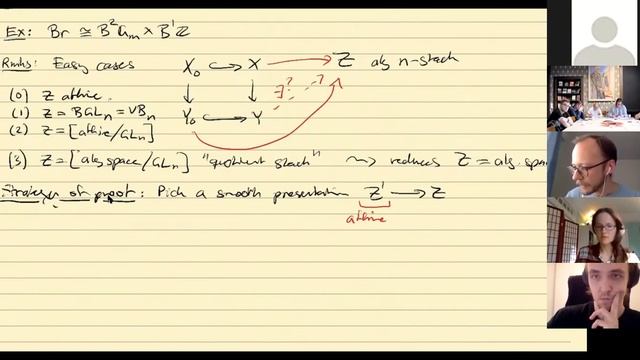 Ex: Br ≅ B²𝔾ₘ × B'ℤ
Rmks: Easy cases
X₀ ↪ X → Z alg n-stack
↓ ↓ ∃? ?
(0) Z affine.
Y₀ ↪ Y
(1) Z = BGLₙ = VBₙ
(2) Z = [affine/GLₙ]
(3) Z = [alg space/GLₙ] "quotient stack" ⇝ reduces Z = alg. spa
Strategy of proof: Pick a smooth presentation Z' → Z
affine